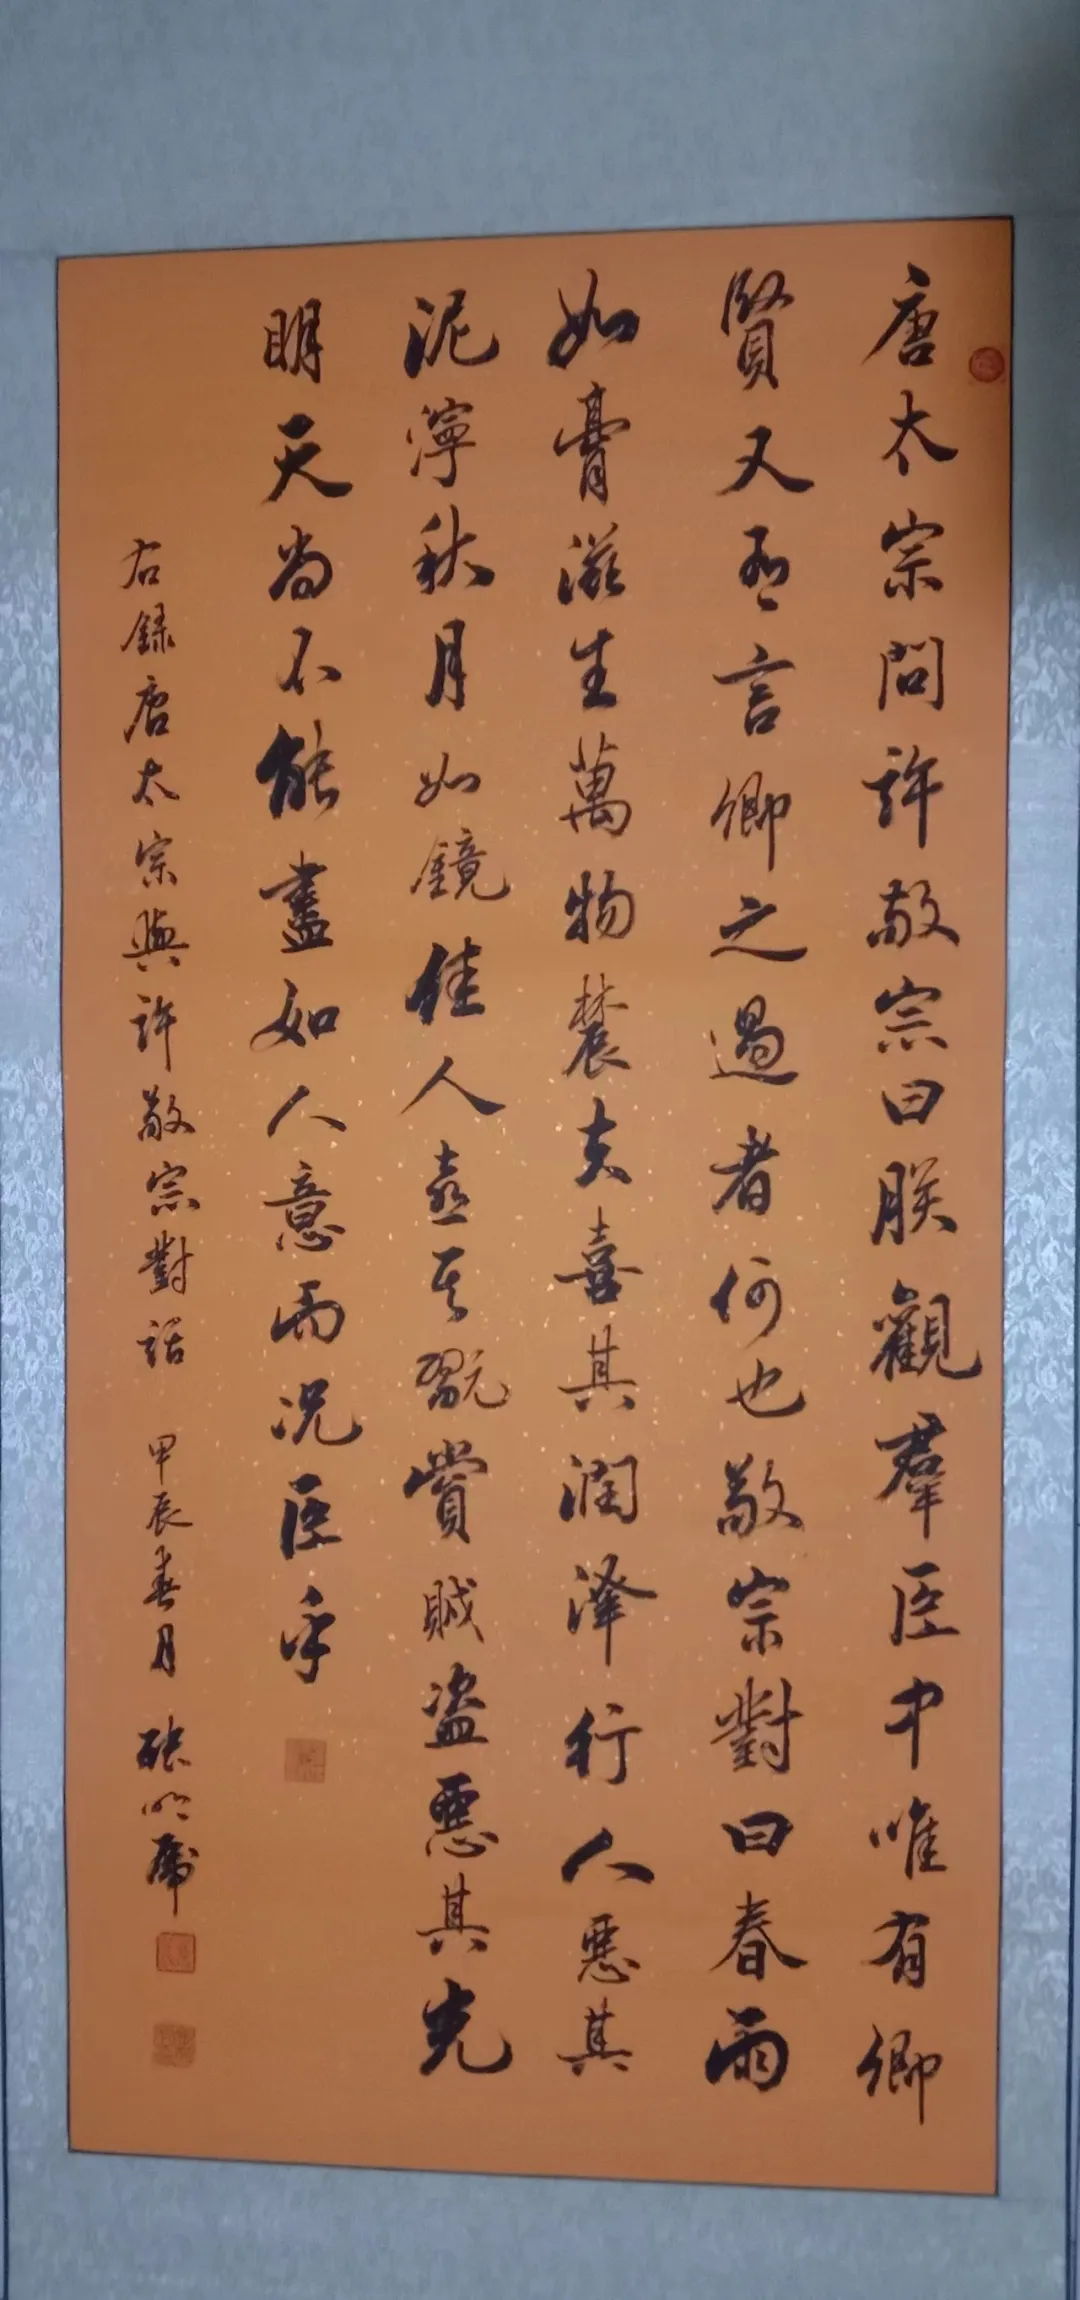 唐太宗問許敬宗曰朕觀羣臣中唯有卿
賢又言卿之過者何也敬宗對曰春雨
如膏滋生萬物農夫喜其潤澤行人惡其
泥濘秋月如鏡佳人喜其翫賞賊盗惡其光
明天尚不能盡如人意而况臣乎
右録唐太宗與許敬宗對話 甲辰春月 張明